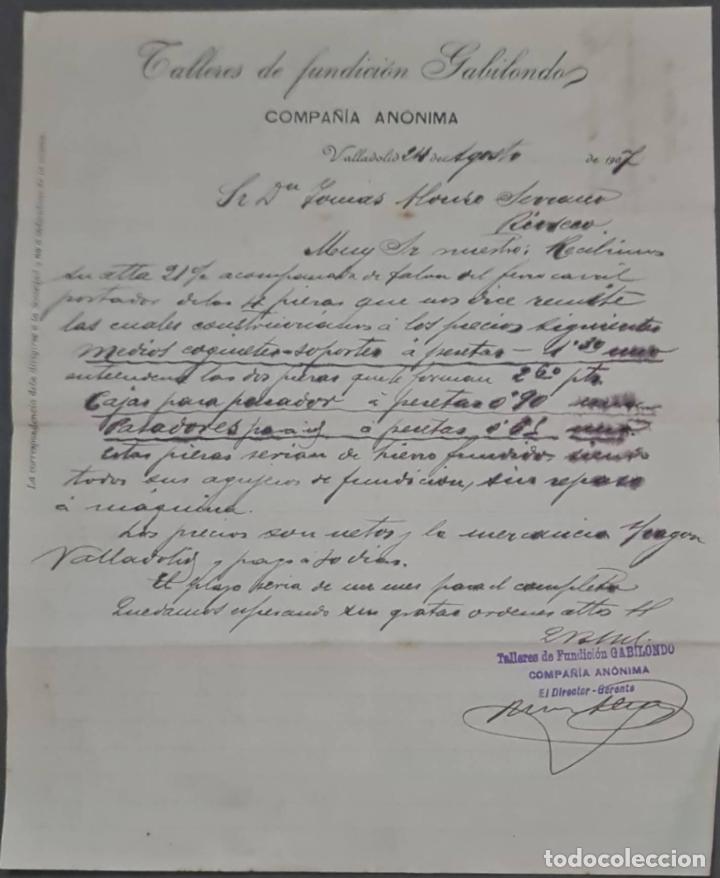 Talleres de fundición Gabilondo
COMPAÑIA ANÓNIMA
Valladolid 24 de Agosto de 1907
Sr Dn Tomás Alonso Serrano
Rioseco
La correspondencia debe dirigirse a la Sociedad y no a individuos de la misma.
Muy Sr nuestro: Recibimos
su atta 21 % acompañada de talon del ferrocarril
portador de las 4 piezas que nos dice remite
las cuales construiriamos á los precios siguientes
Medios coquetes-soportes á pesetas - 1'30 uno
entendiendo las dos piezas que le forman 2'60 pts
Cajas para pasador á pesetas 0'90
Pasadores para id á pesetas 0'65
estas piezas serian de hierro fundido, siendo
todos sus agujeros de fundicion, sin repaso
á máquina.
Los precios son netos y la mercancia s/vagon
Valladolid y pago á 30 dias.
El plazo seria de un mes para el completo
Quedamos esperando sus gratas ordenes attos
Talleres de Fundición GABILONDO
COMPAÑIA ANÓNIMA
El Director-Gerente
todocoleccion
todocoleccion.net